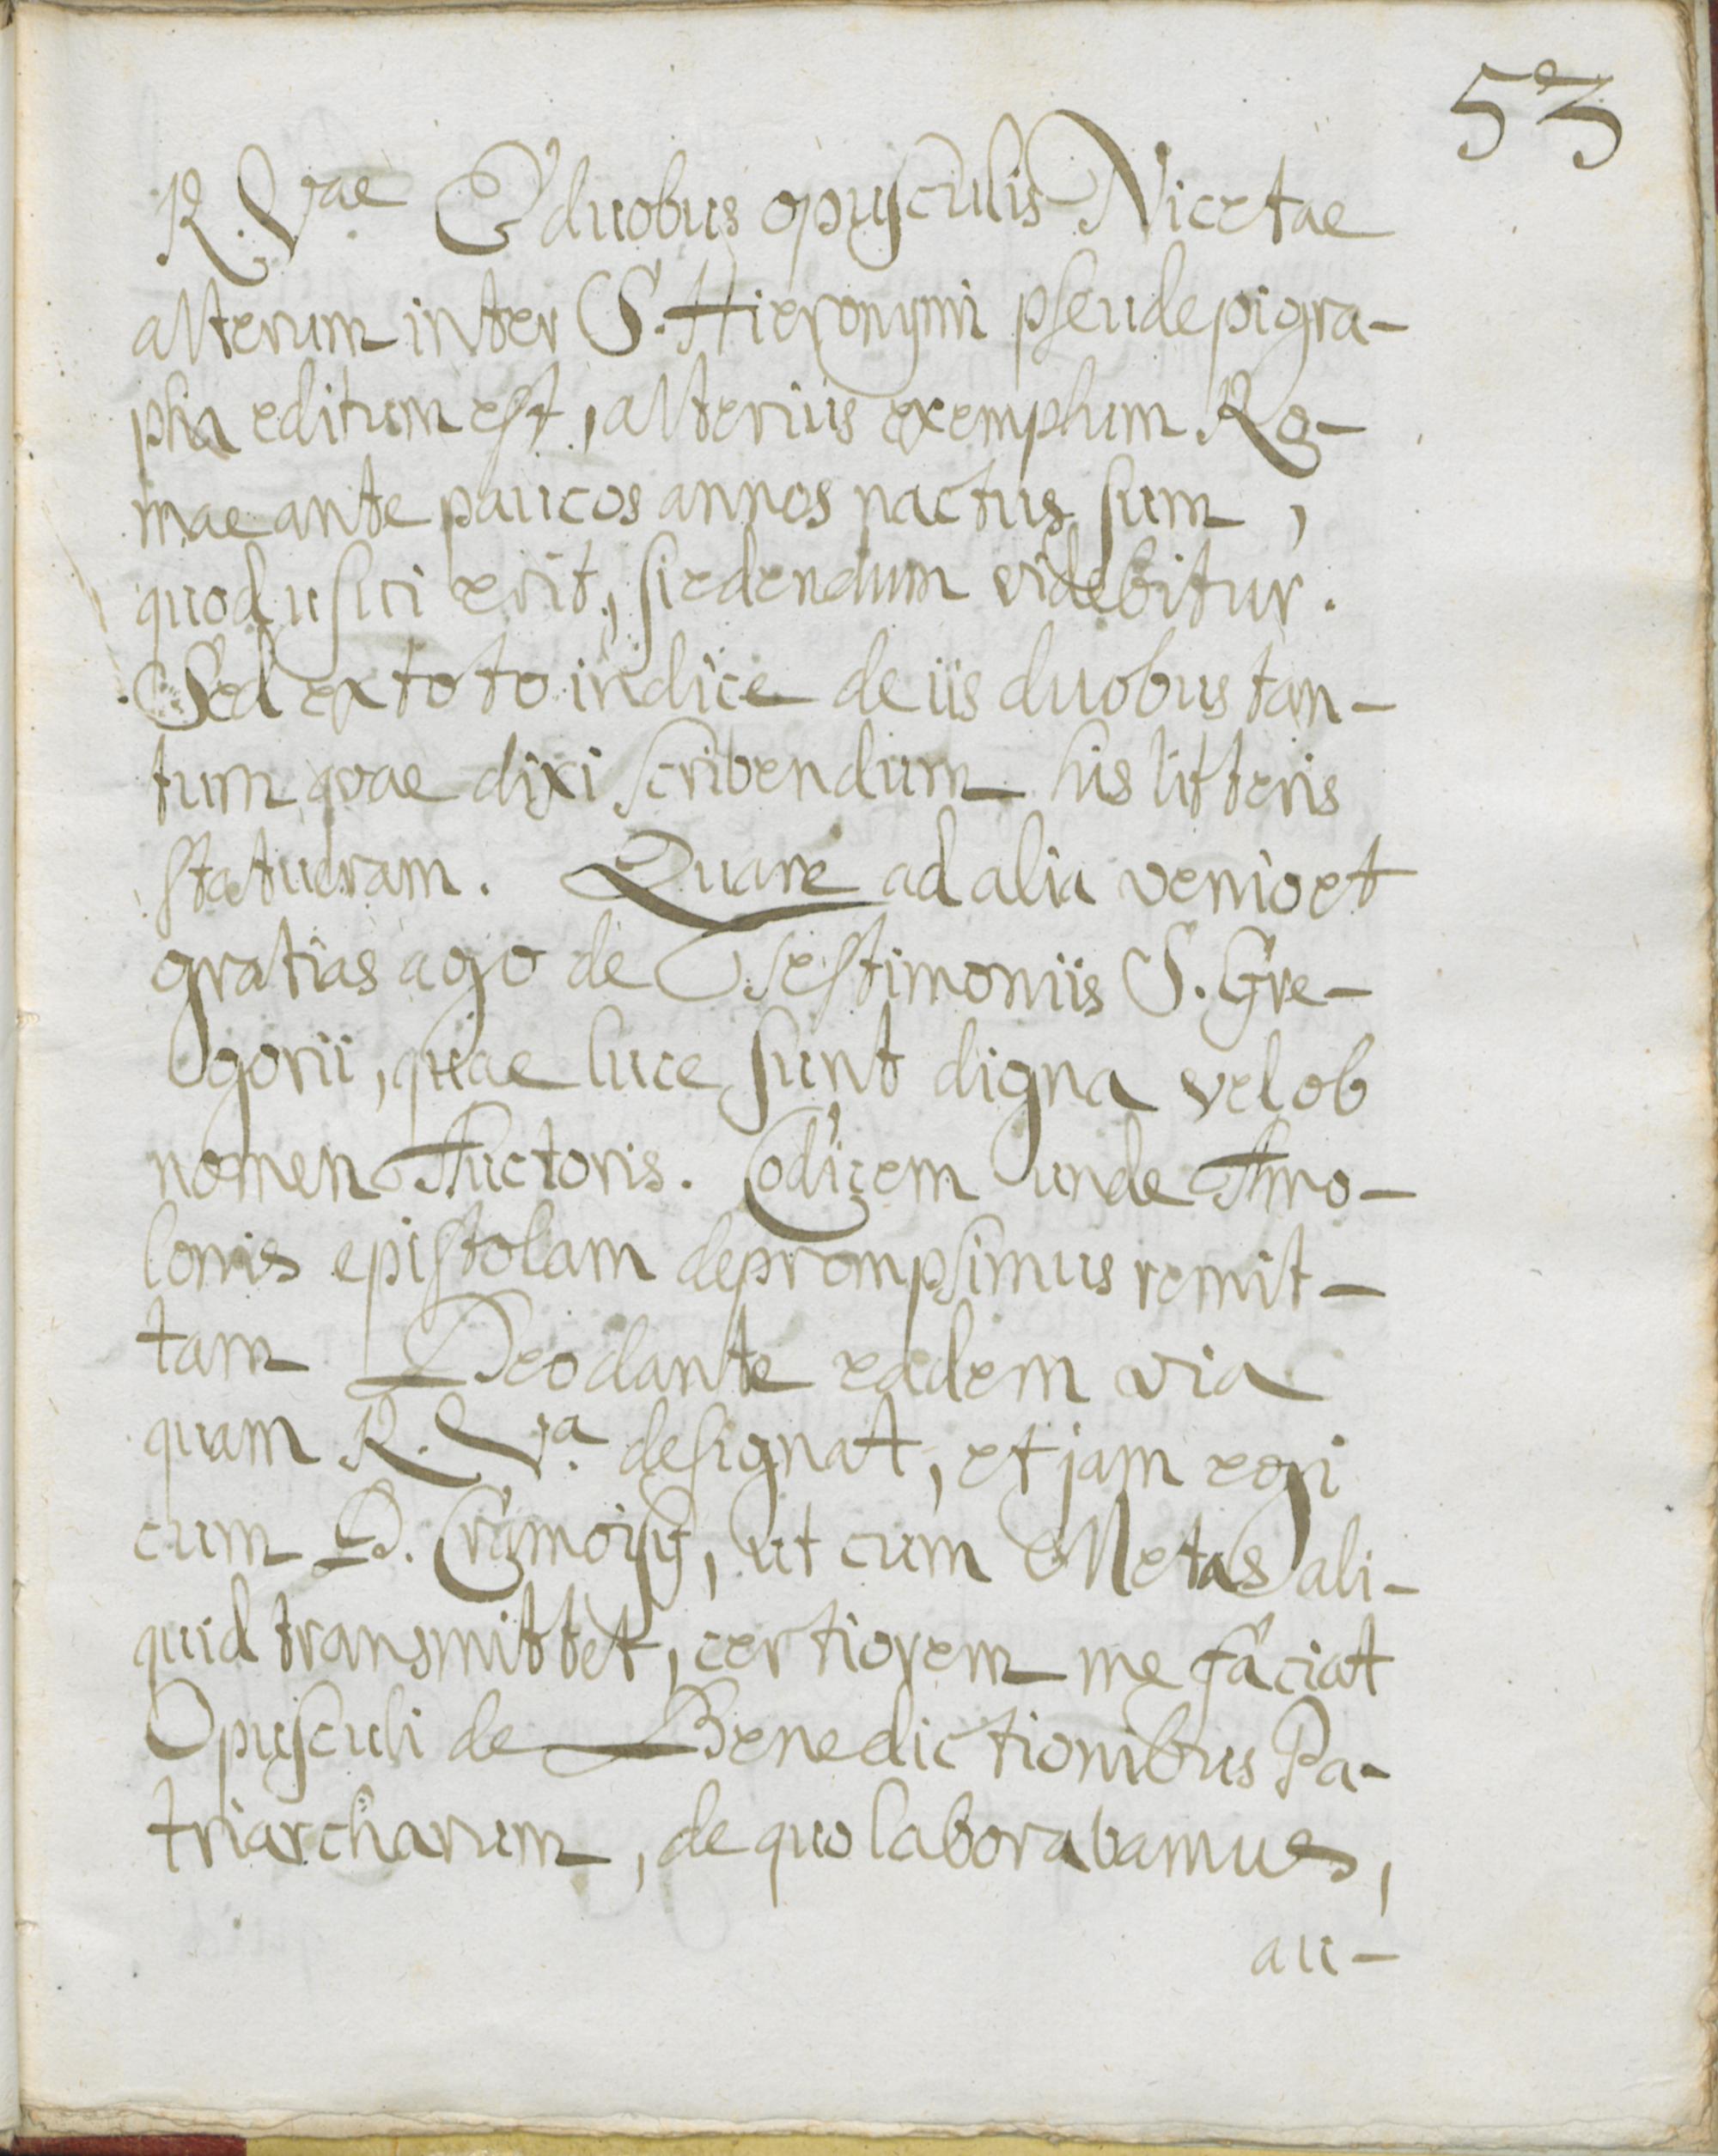 53
R. Vae E duobus opusculis Nicetae
alterum inter S. Hieronymi pseudepigra-
pha editum est, alterius exemplum Ro-
mae ante paucos annos nactus sum,
quod usui erit, si edendum videbitur.
Sed ex toto indice de iis duobus tan-
tum quae dixi scribendum his litteris
statueram. Quare ad alia venio et
gratias ago de Testimoniis S. Gre-
gorii, quae luce sunt digna vel ob
nomen Auctoris. Codicem unde Amo-
lonis epistolam depromsimus remit-
tam Deo dante eadem via
quam R. Va. designat, et jam egi
cum D. Cramoisy, ut cum Metas ali-
quid transmittet, certiorem me faciat
Opusculi de Benedictionibus Pa-
triarcharum, de quo laborabamus,
au-